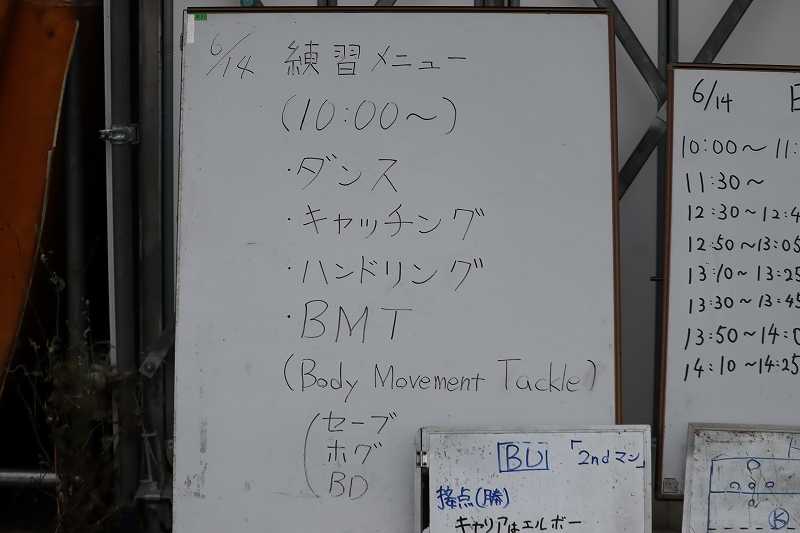 6/14 練習メニュー
(10:00〜)
・ダンス
・キャッチング
・ハンドリング
・BMT
(Body Movement Tackle)
セーブ
ホグ
BD
BD 「2ndマン」
接点(勝)
キャリアはエルボー
6/14
10:00〜11:
11:30〜
12:30〜12:4
12:50〜13:05
13:10〜13:25
13:30〜13:45
13:50〜14:0
14:10〜14:25
K